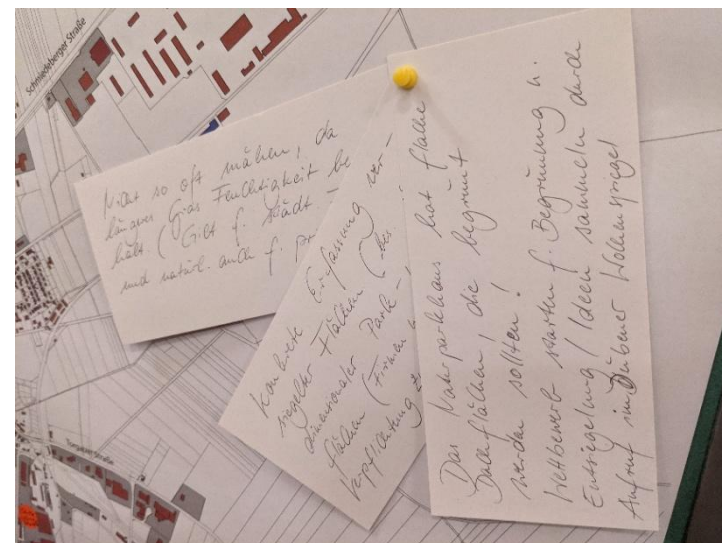 Schmiedeberger Straße
Nicht so oft mähen, da
längeres Gras Feuchtigkeit be
hält. (Gilt f. städt-
und natürl. auch f. pr
Konkrete Erfassung ver-
siegelter Flächen (bes.
dimensionaler Park-
flächen (Firmen
Verpflichtung
Das Naturparkhaus hat flache
Dachflächen, die begrünt
werden sollten!
Wettbewerb starten f. Begrünung u.
Entsiegelung / Ideen sammeln durch
Aufruf im Dübener Wochenspiegel
Torgauer Straße